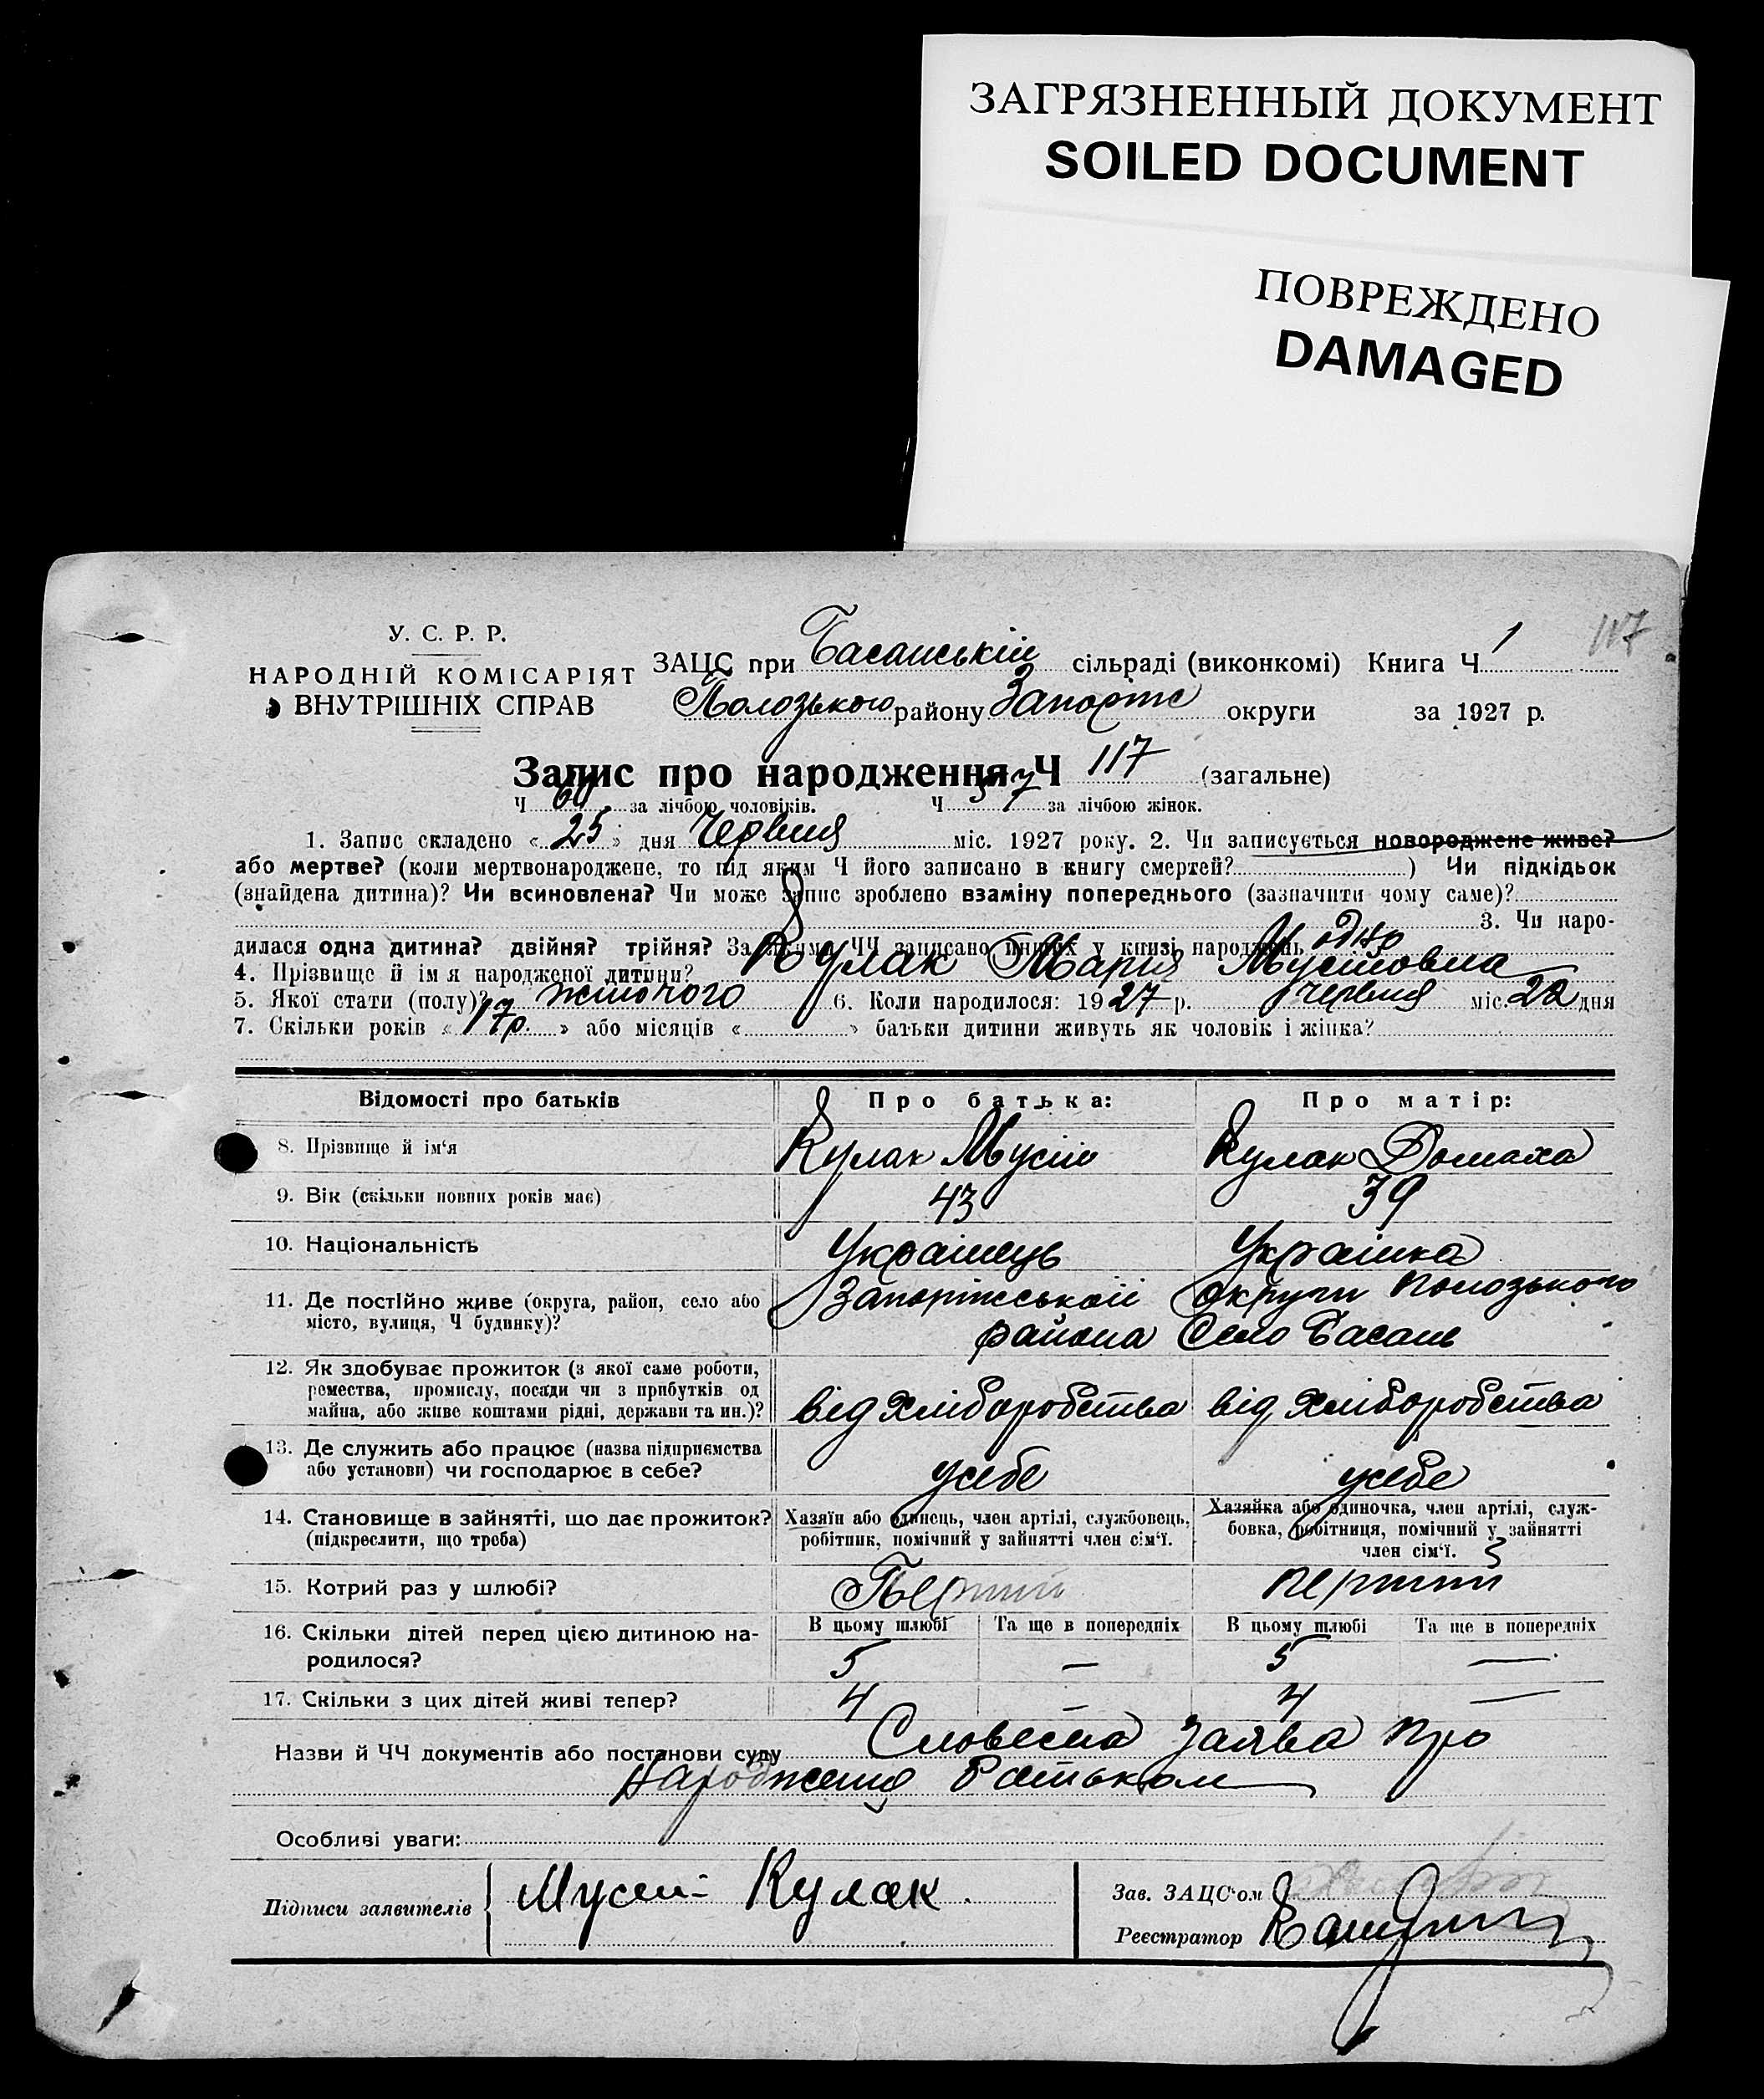 ЗАГРЯЗНЕННЫЙ ДОКУМЕНТ
SOILED DOCUMENT
ПОВРЕЖДЕНО
DAMAGED
117
У. С. Р. Р.
НАРОДНІЙ КОМІСАРІЯТ
ВНУТРІШНІХ СПРАВ
ЗАЦС при Басанській сільраді (виконкомі) Книга Ч 1
Полозького району Запоріз округи за 1927 р.
Запис про народження Ч 117 (загальне)
Ч 60 за лічбою чоловіків. Ч 57 за лічбою жінок.
1. Запис складено « 25 » дня Червня міс. 1927 року. 2. Чи записується новороджене живе?
або мертве? (коли мертвонароджене, то під яким Ч його записано в книгу смертей? ) Чи підкідьок
(знайдена дитина)? Чи всиновлена? Чи може запис зроблено взаміну попереднього (зазначити чому саме)?
3. Чи наро-
дилася одна дитина? двійня? трійня? За якими ЧЧ записано инших у книзі народжень одна
4. Прізвище й ім'я народженої дитини? Кулак Мария Мусіовна
5. Якої стати (полу)? жіночого 6. Коли народилося: 1927 р. червня міс. 22 дня
7. Скільки років « 17р. » або місяців « » батьки дитини живуть як чоловік і жінка?
Відомості про батьків Про батька: Про матір:
8. Прізвище й ім'я Кулак Мусій Кулак Домаха
9. Вік (скільки повних років має) 43 39
10. Національність Українець Українка
11. Де постійно живе (округа, район, село або Запоріжськоїі округи Полозького
місто, вулиця, Ч будинку)? района Село Басань
12. Як здобуває прожиток (з якої саме роботи,
ремества, промислу, посади чи з прибутків од
майна, або живе коштами рідні, держави та ин.)? від хліборобства від хліборобства
13. Де служить або працює (назва підприємства
або установи) чи господарює в себе? усебе усебе
14. Становище в зайнятті, що дає прожиток? Хазяїн або одинець, член артілі, службовець, Хазяйка або одиночка, член артілі, служ-
(підкреслити, що треба) робітник, помічний у зайнятті член сім'ї. бовка, робітниця, помічний у зайнятті
член сім'ї.
15. Котрий раз у шлюбі? Перший перший
16. Скільки дітей перед цією дитиною на- В цьому шлюбі Та ще в попередніх В цьому шлюбі Та ще в попередніх
родилося? 5 — 5 —
17. Скільки з цих дітей живі тепер? 4 4 —
Назви й ЧЧ документів або постанови суду Словесна заява про
народження батьком
Особливі уваги:
Підписи заявителів Мусій Кулак.
Зав. ЗАЦС'ом
Реєстратор